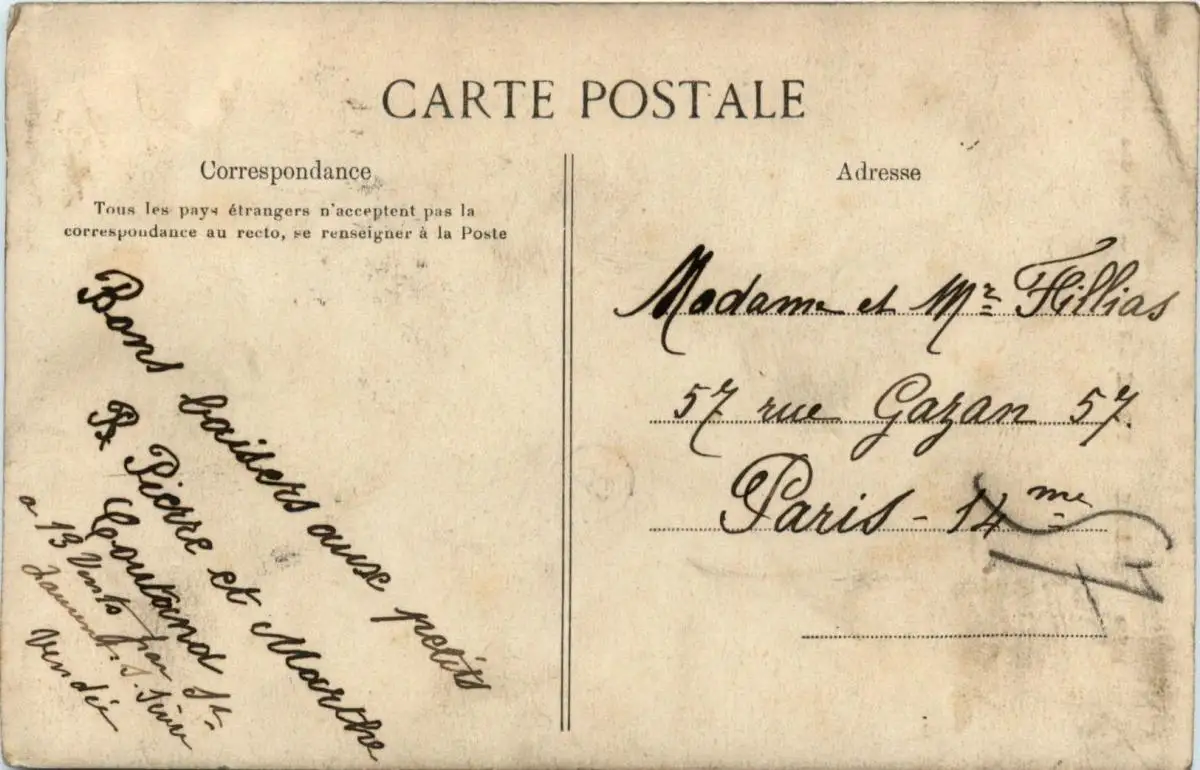 CARTE POSTALE
Correspondance
Tous les pays étrangers n'acceptent pas la
correspondance au recto, se renseigner à la Poste
Bons baisers aux petits
B Pierre et Marthe
Coutand
a 13 Vents par St
Laurent. S. Sèvre
Vendée
Adresse
Madame et Mr Fillias
57 rue Gazan 57.
Paris - 14me